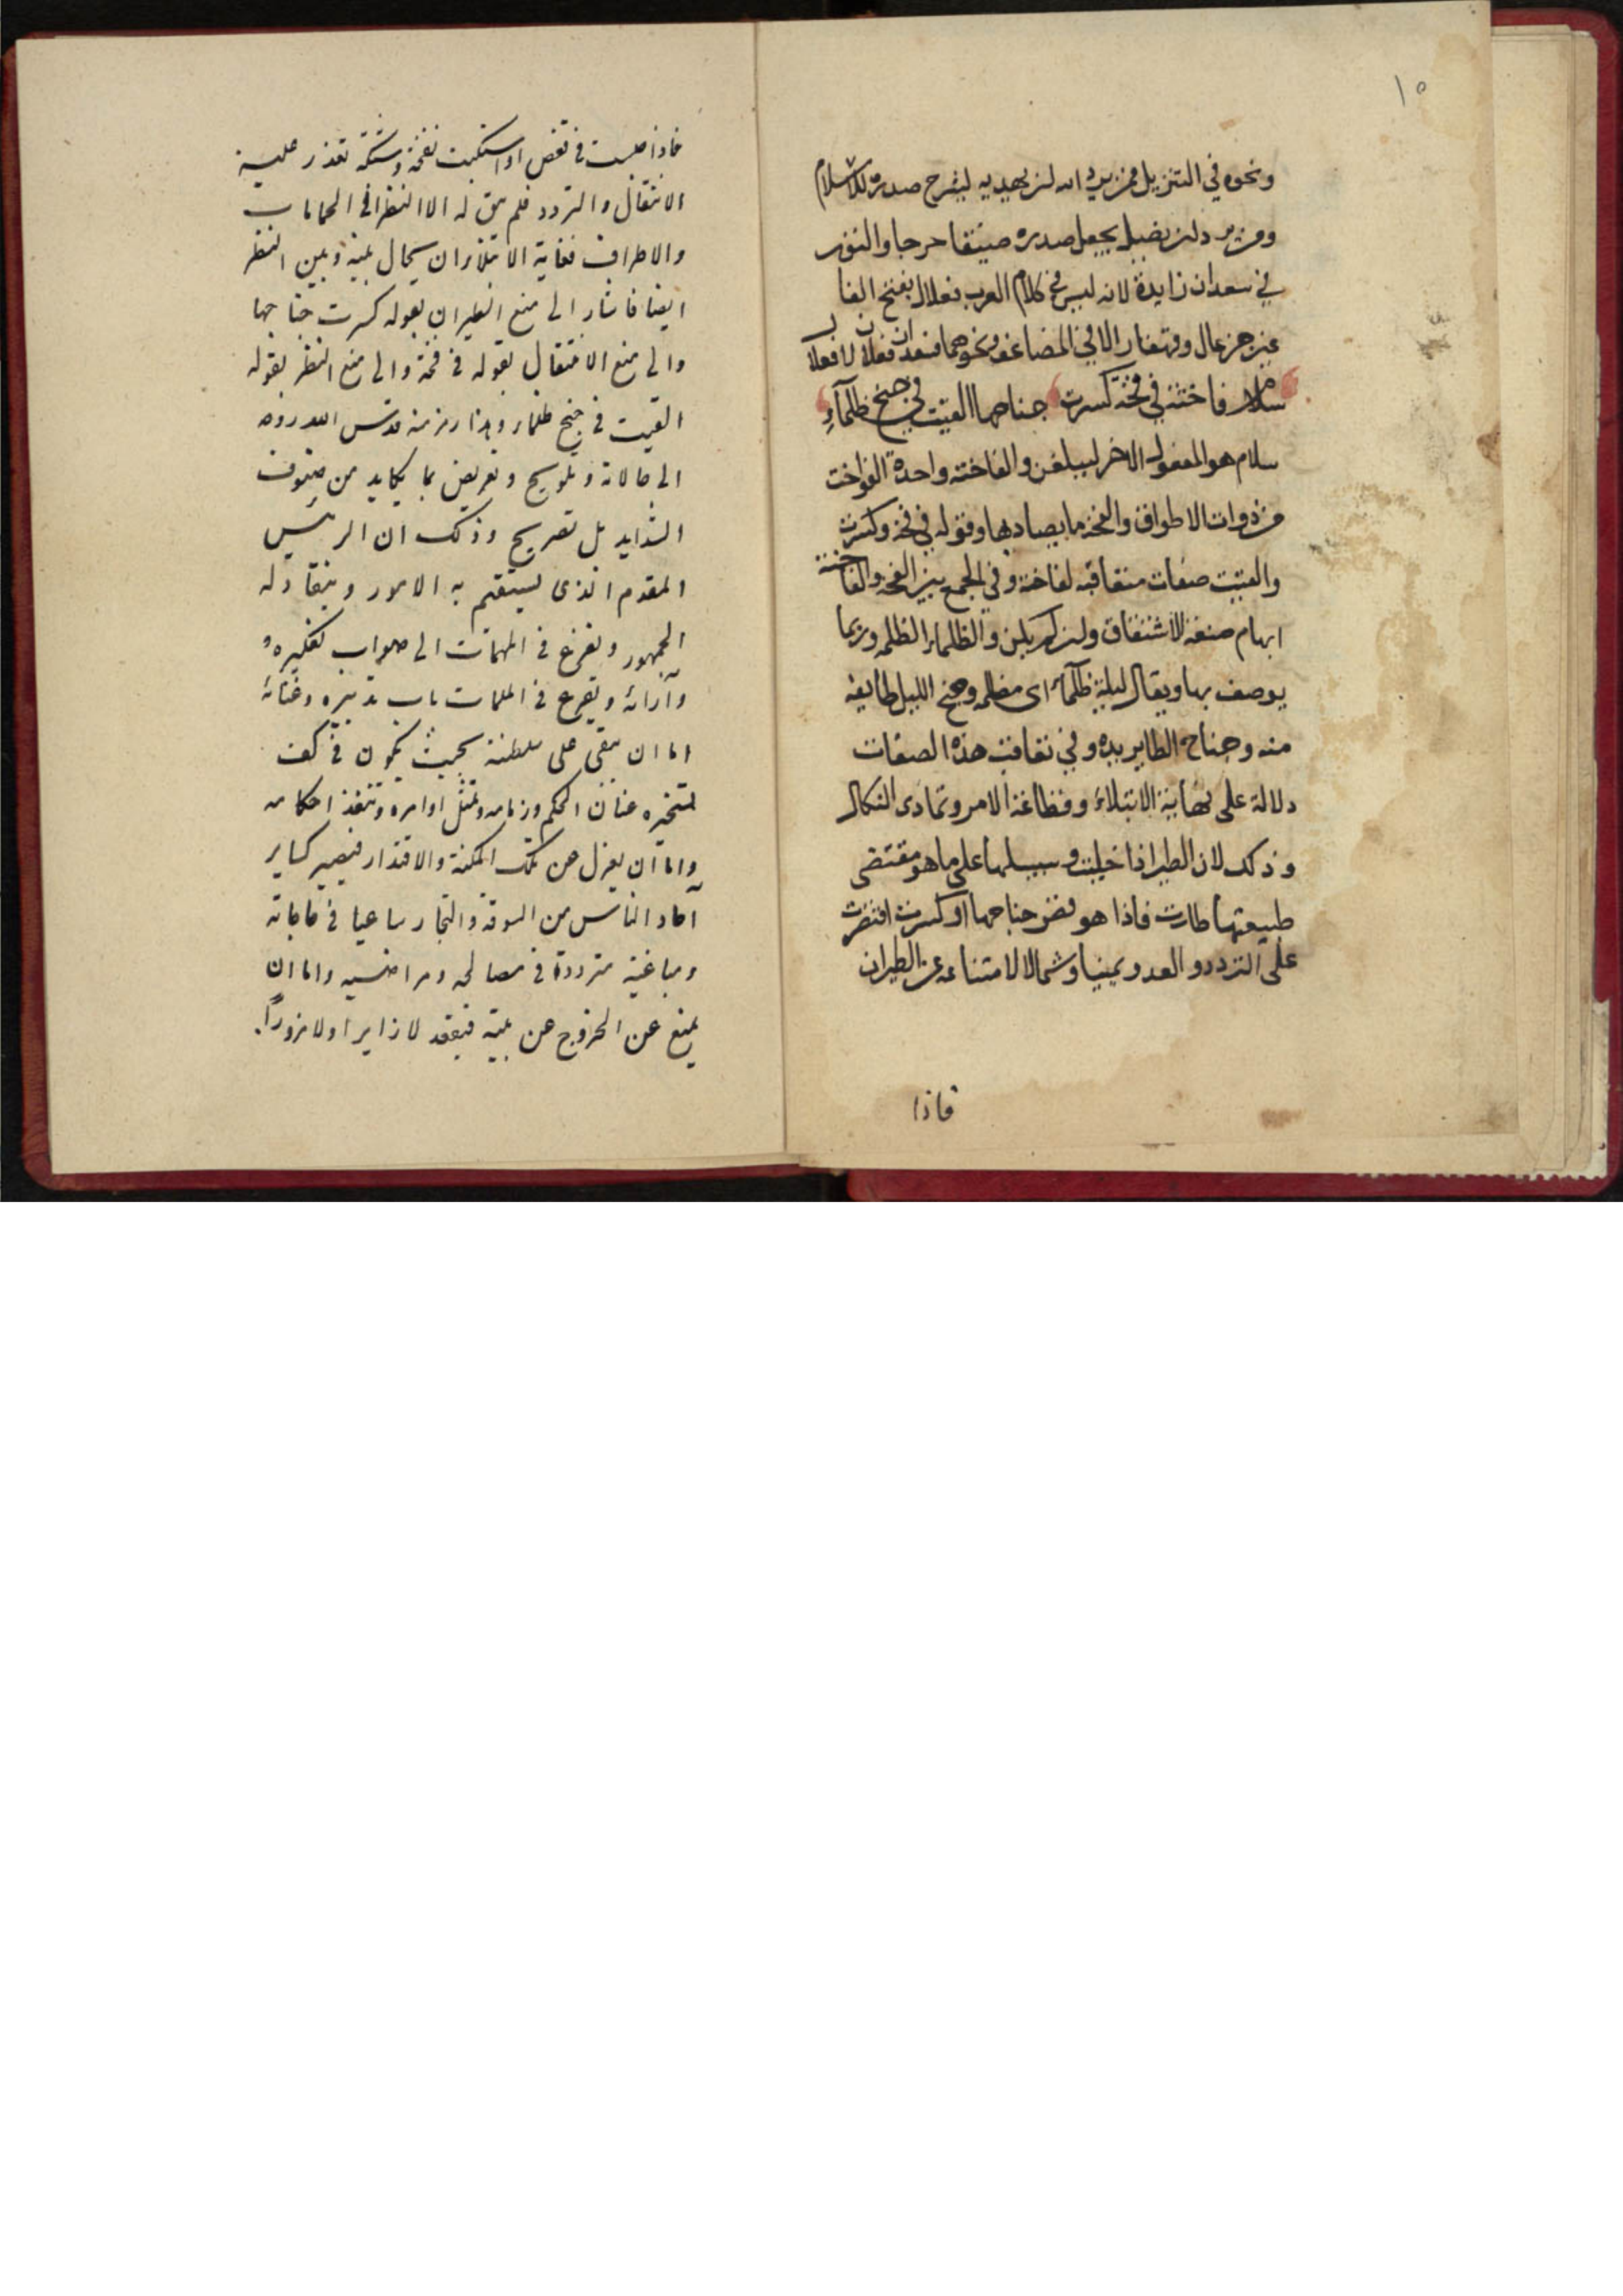 ١٥
ونحوه في التنزيل فمن يرد الله ان يهديه يشرح صدره للاسلام
ومن يرد ان يضله يجعل صدره ضيقا حرجا والنون
في سعدان زايدة لانه ليس في كلام العرب فعلال بفتح الفا
غير خزعال وقهقار الا في المضاعف ونحوهما فسعدان فعلان لا فعلال
سلام فاختة في فخة كسرت جناحها القيت في جنح ظلماء
سلام هو المفعول الاخر ليبلغن والفاختة واحدة الفواخت
من ذوات الاطواق والفخة ما يصاد بها وقوله في فخة وكسرت
والقيت صفات متعاقبة لفاختة وفي الجمع بين الفخة والفاختة
ايهام صنعة الاشتقاق وان لم يكن والظلماء الظلمة وربما
يوصف بها ويقال ليلة ظلماء اى مظلمة وجنح الليل طايفة
منه وجناح الطاير يده وفي تعاقب هذه الصفات
دلالة على نهاية الابتلاء وفظاعة الامر وتمادى النكال
وذكك لان الطير اذا خليت وسبيلها على ما هو مقتضى
طبيعتها طارت فاذا هو قص جناحها او كسرت اقتصرت
على التردد والعدو يمينا وشمالا لامتناعه عن الطيران
فاذا
فاذا حبست في قفص او استكبت بفخة وشبكة تعذر عليه
الانتقال والتردد فلم يبق له الا النظر في الجهات
والاطراف فغاية الابتلاء ان يحال بينه وبين النظر
ايضا فاشار الى منع الطيران بقوله كسرت جناحها
والى منع الانتقال بقوله في فخة والى منع النظر بقوله
القيت في جنح ظلماء وهذا رمز منه قدس الله روحه
الى حالاته وتلويح وتعريض بما يكابد من صنوف
الشدايد بل تصريح وذلك ان الرئيس
المقدم الذى يستقيم به الامور وينقاد له
الجمهور ويفزع في المهمات الى صواب تفكيره
وآرائه ويقرع في الملمات باب تدبيره وغنائه
اما ان يبقى على سلطنته بحيث يكون في كف
تسخيره عنان الحكم وزمامه وتمتثل اوامره وتنفذ احكامه
واما ان يعزل عن تلك المكنة والاقتدار فيصير كساير
آحاد الناس من السوقة والتجار ساعيا في حاجاته
ومباغيه مترددا في مصالحه ومراضيه واما ان
يمنع عن الخروج عن بيته فيقعد لا زايرا ولا مزورا